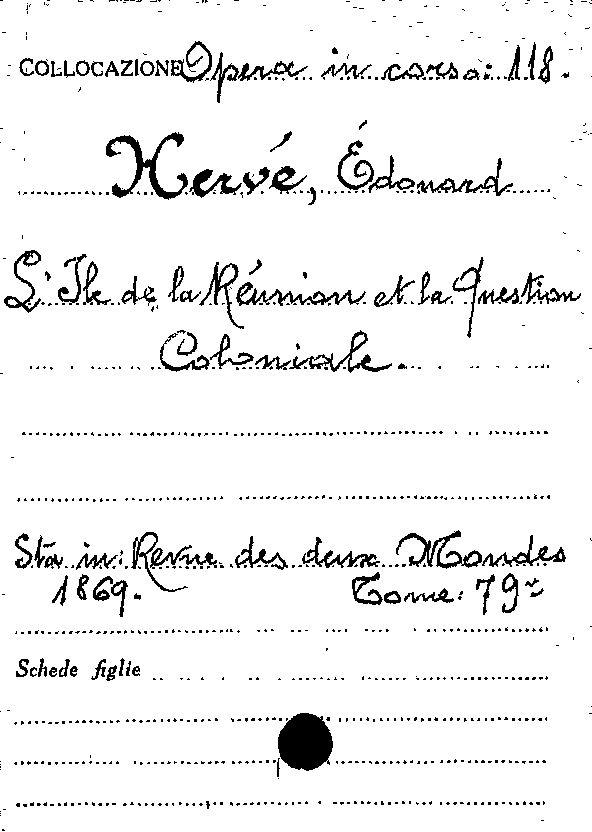 COLLOCAZIONE Opera in corso: 118.
Hervé, Édouard
L'Ile de la Réunion et la Question
Coloniale.
Sta in: Revue des deux Mondes
1869. Tome: 79
Schede figlie